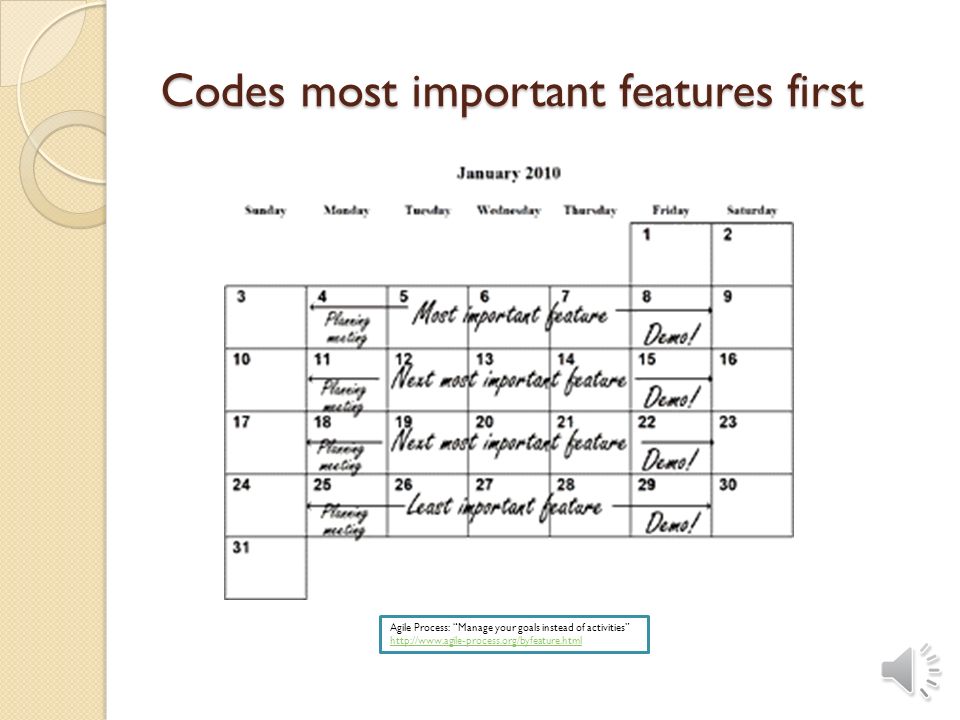 Codes most important features first
January 2010
Sunday Monday Tuesday Wednesday Thursday Friday Saturday
1 2
3 4 5 6 7 8 9
Planning meeting Most important feature Demo!
10 11 12 13 14 15 16
Planning meeting Next most important feature Demo!
17 18 19 20 21 22 23
Planning meeting Next most important feature Demo!
24 25 26 27 28 29 30
Planning meeting Least important feature Demo!
31
Agile Process: “Manage your goals instead of activities”
http://www.agile-process.org/byfeature.html